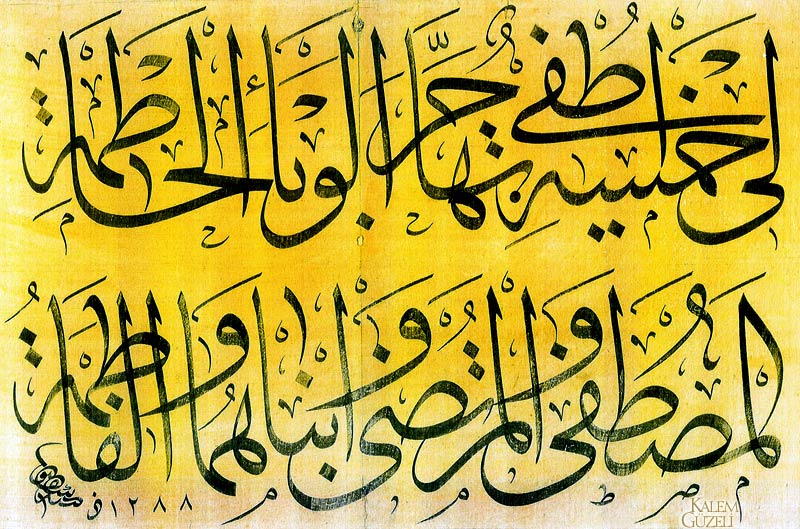 لى خمسة اطفى بها حر الوباء الحاطمة
المصطفى والمرتضى وابناهما والفاطمة
١٢٨٨
KALEM
GÜZELİ